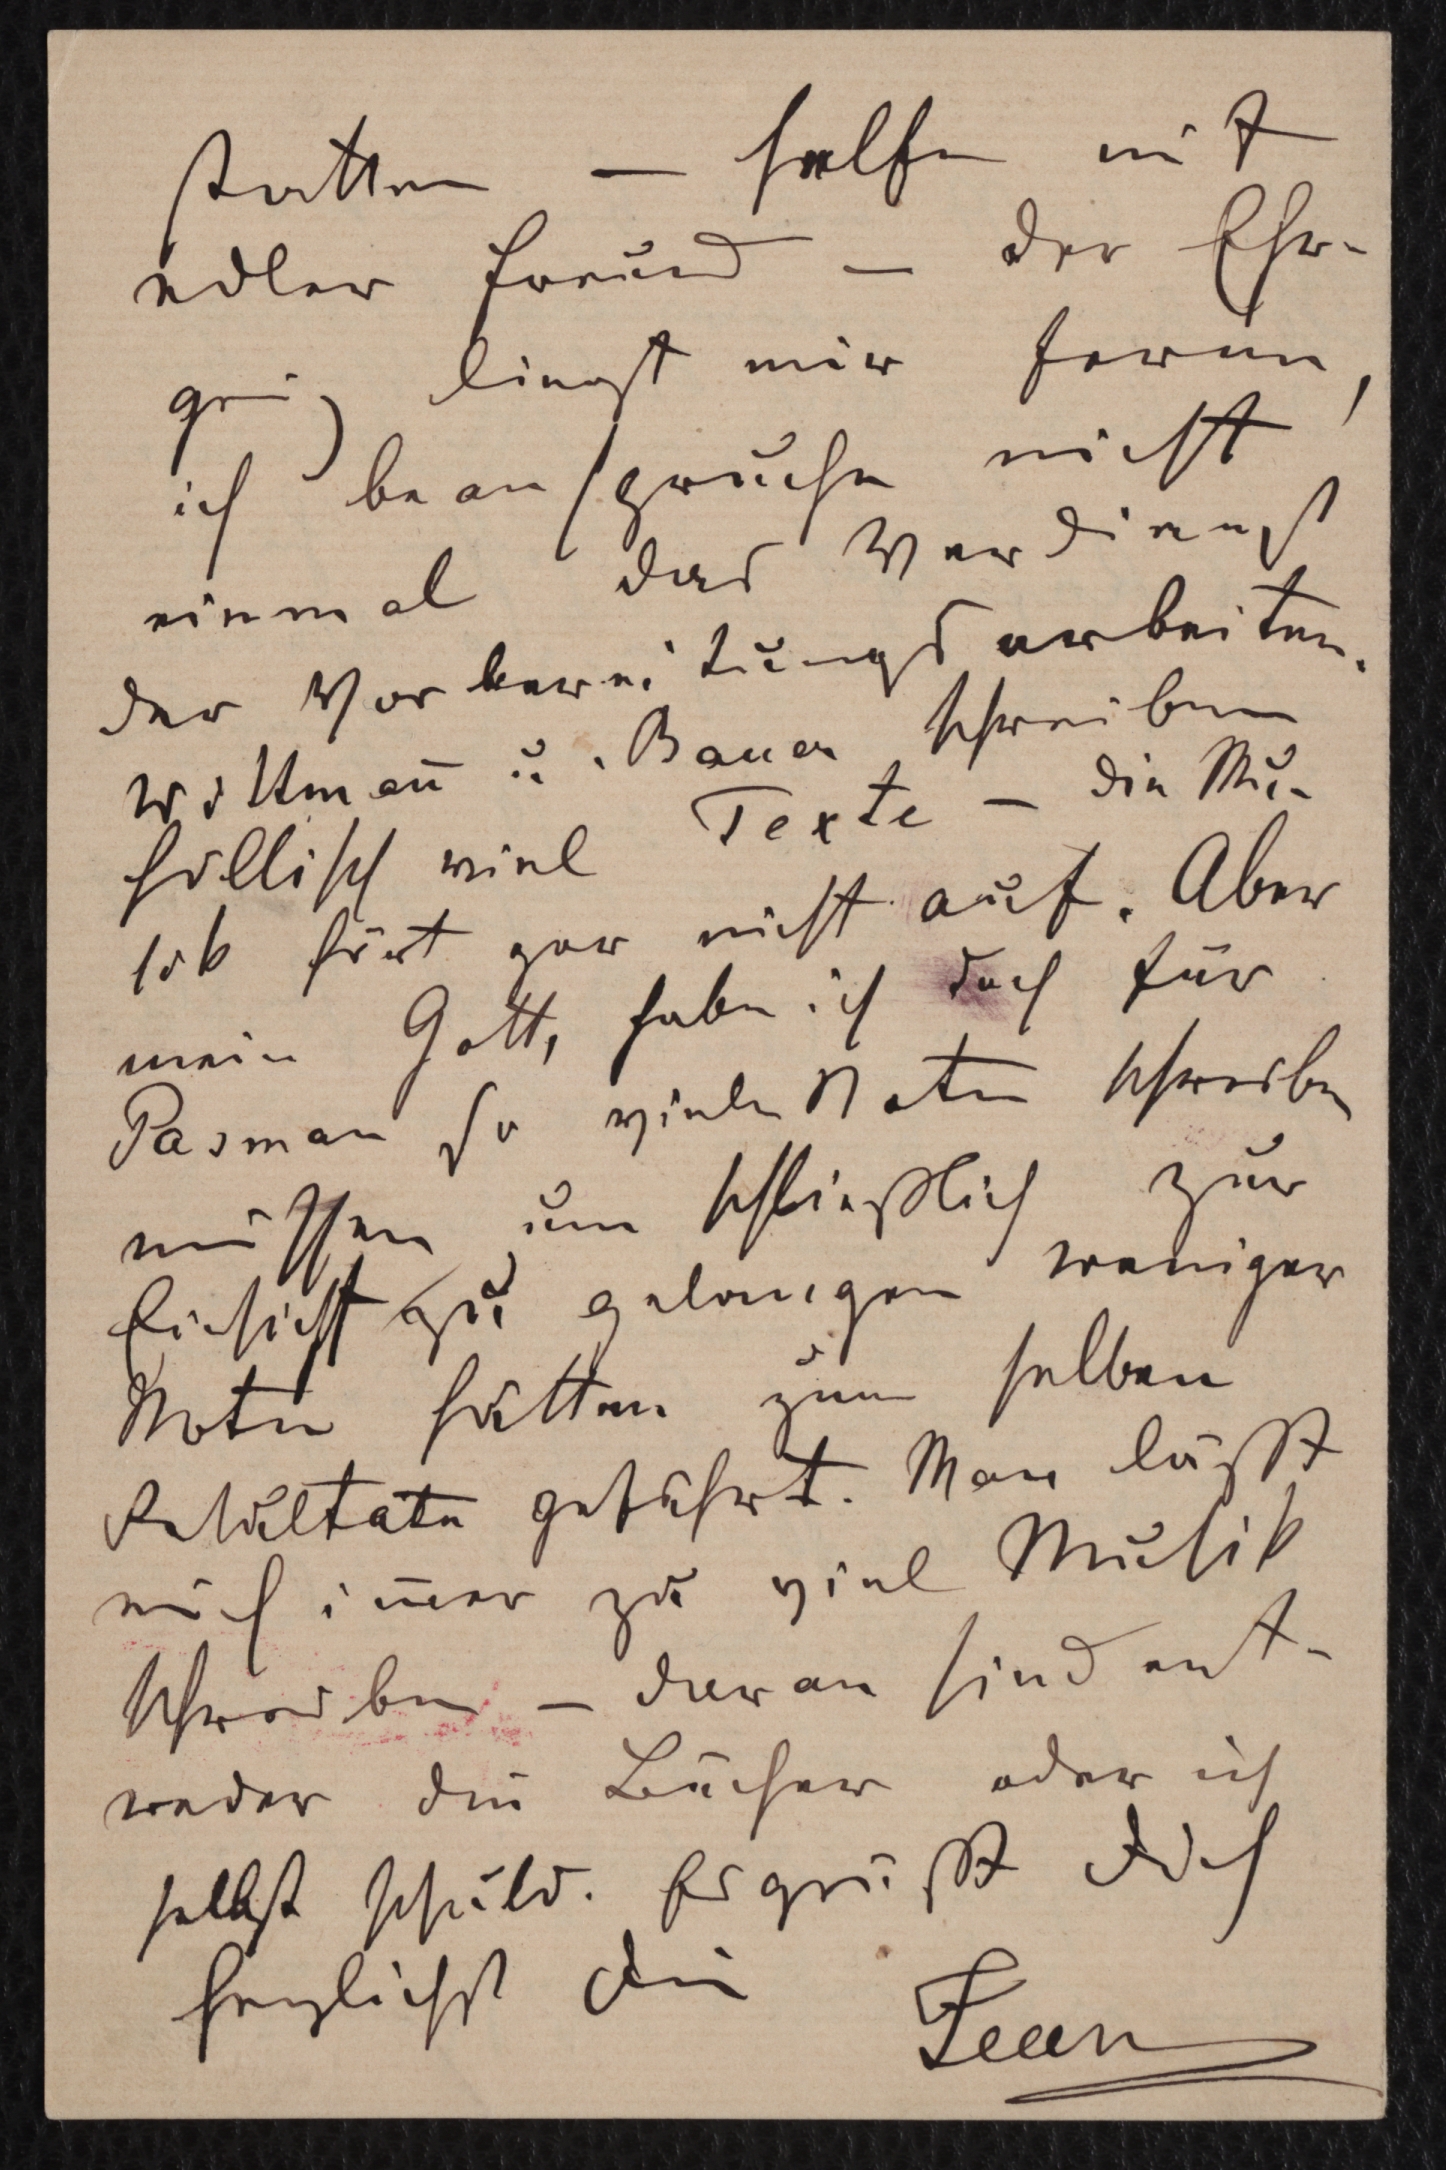 statten — helfe mit
edler Freund — der Ehr-
geiz liegt mir ferne,
ich beanspruche nicht
einmal das Verdienst
der Vorbereitungsarbeiten.
Wittman̅ u. Bauer schreiben
höllisch viel Texte — die Mu-
sik hört gar nicht auf. Aber
mein Gott, habe ich doch für
Pasman so viele Noten schreiben
müssen um schließlich zur
Einsicht zu gelangen weniger
Noten hätten zum selben
Resultate geführt. Man läßt
mich im̅er zu viel Musik
schreiben — daran sind ent-
weder die Bücher oder ich
selbst schuld. Es grüßt Dich
herzlichst Dein
Jean